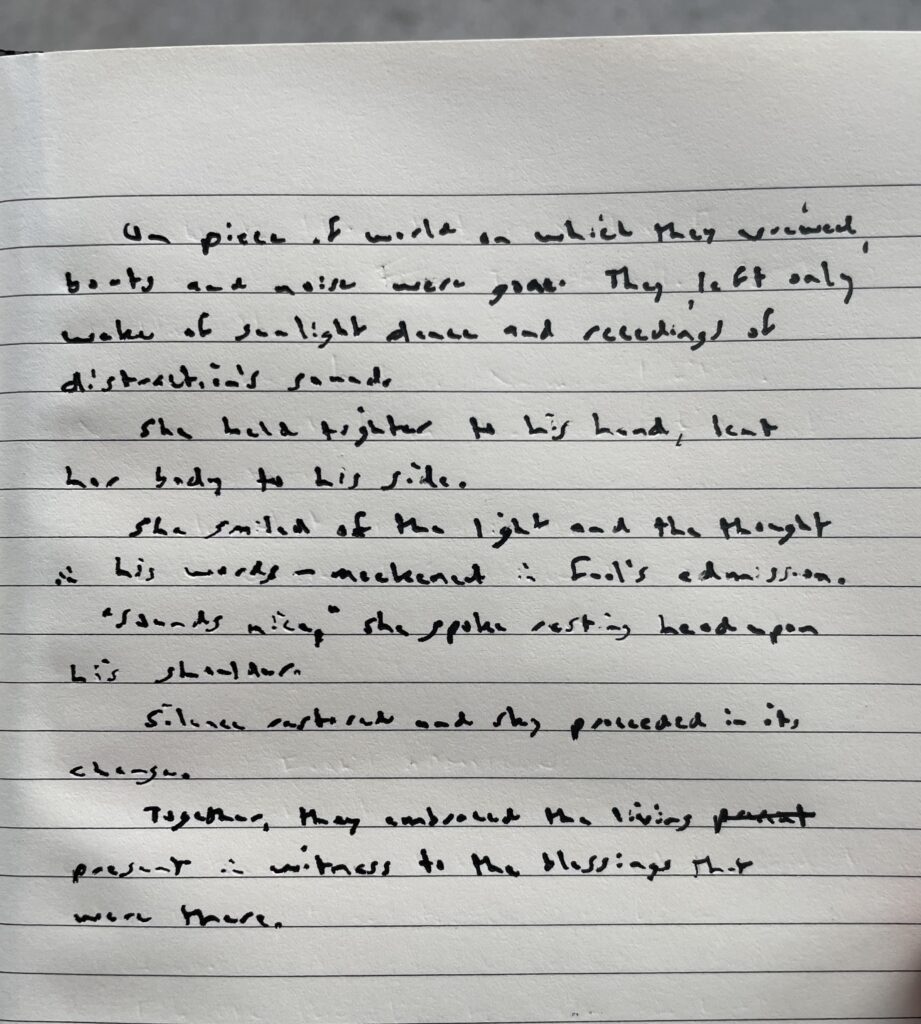 On piece of world on which they viewed,
boats and noise were gone. They left only
wake of sunlight dance and recedings of
distraction's sound.
She held tighter to his hand, leant
her body to his side.
She smiled of the light and the thought
in his words - meekened in fool's admission.
"Sounds nice," she spoke resting head upon
his shoulder.
Silence restored and sky proceeded in its
change.
Together, they embraced the living
present in witness to the blessings that
were there.